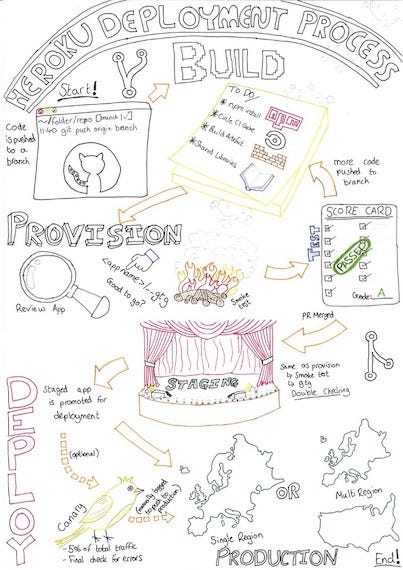 HEROKU DEPLOYMENT PROCESS
BUILD
Start!
~/folder/repo [branch]
11:40 git push origin branch
Code
is pushed
to a
branch
To Do/
* npm install
* Code Climate
* Build Artefact
* Shared Libraries
npm
more code
pushed to
branch
PROVISION
Review App
<app name>/-gtg
Good to go?
Smoke
test
TEST
SCORE CARD
PASSED
Grade: A
PR Merged
STAGING
Same as provision
↳ Smoke test
↳ gtg
Double Checking
DEPLOY
Staged app
is promoted for
deployment
(optional)
Canary
- 5% of total traffic
- Final check for errors
(manually
push to
production)
Single Region
OR
Multi Region
PRODUCTION
End!